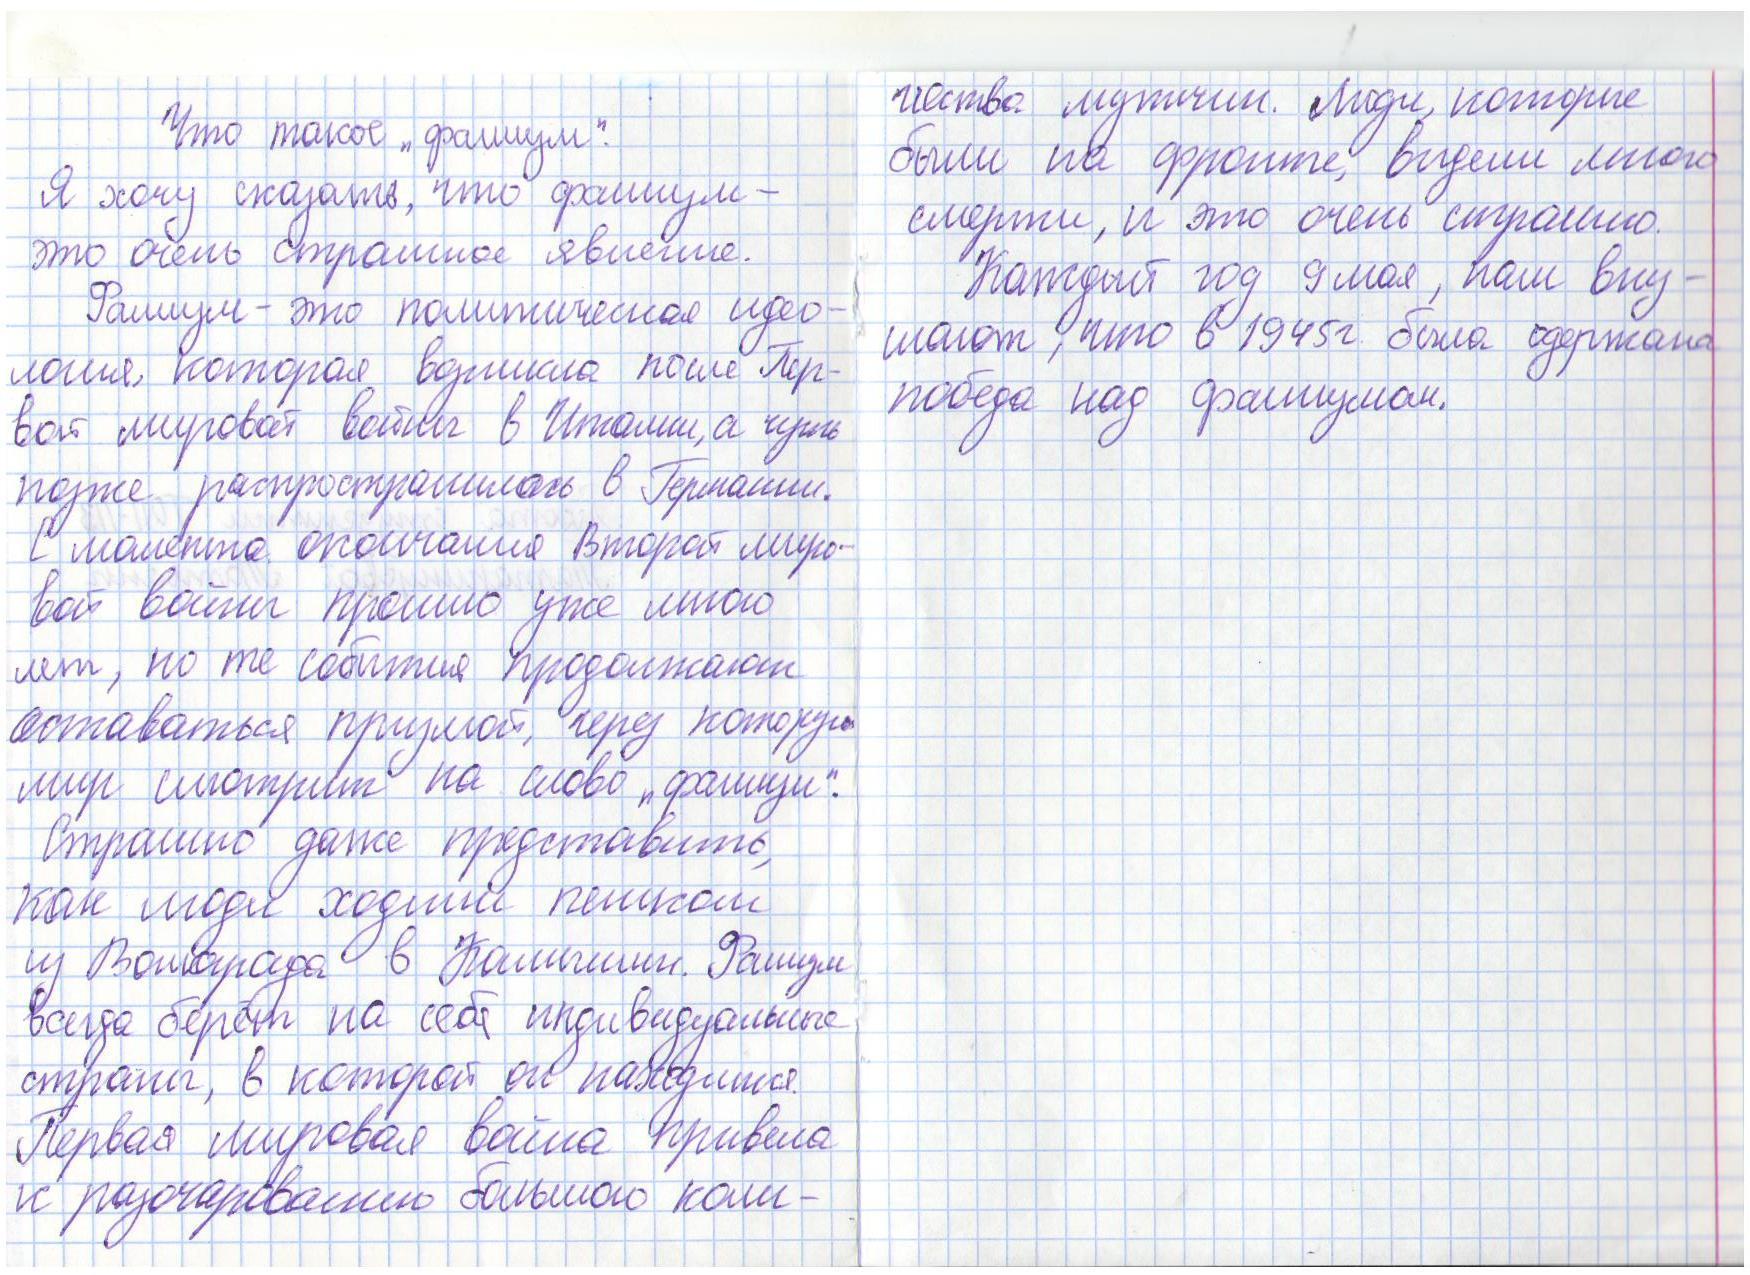 Что такое „фашизм".
Я хочу сказать, что фашизм –
это очень страшное явление.
Фашизм – это политическая идео-
логия, которая возникла после Пер-
вой мировой войны в Италии, а чуть
позже распространилась в Германии.
С момента окончания Второй миро-
вой войны прошло уже много
лет, но те события продолжают
оставаться призмой, через которую
мир смотрит на слово „фашизм".
Страшно даже представить,
как люди ходили пешком
из Волгограда в Камышин. Фашизм
всегда берёт на себя индивидуальные
страны, в которой он находится.
Первая мировая война привела
к разочарованию большого коли-
чества мужчин. Люди, которые
были на фронте, видели много
смерти, и это очень страшно.
Каждый год 9 мая, нам вну-
шают, что в 1945г. была одержана
победа над фашизмом.